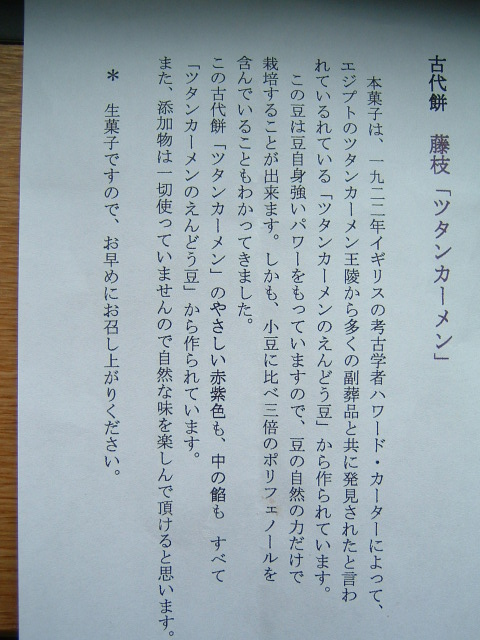 古代餅　藤枝「ツタンカーメン」
本菓子は、一九二二年イギリスの考古学者ハワード・カーターによって、
エジプトのツタンカーメン王陵から多くの副葬品と共に発見されたと言わ
れているれている「ツタンカーメンのえんどう豆」から作られています。
この豆は豆自身強いパワーをもっていますので、豆の自然の力だけで
栽培することが出来ます。しかも、小豆に比べ三倍のポリフェノールを
含んでいることもわかってきました。
この古代餅「ツタンカーメン」のやさしい赤紫色も、中の餡も　すべて
「ツタンカーメンのえんどう豆」から作られています。
また、添加物は一切使っていませんので自然な味を楽しんで頂けると思います。
＊　生菓子ですので、お早めにお召し上がりください。